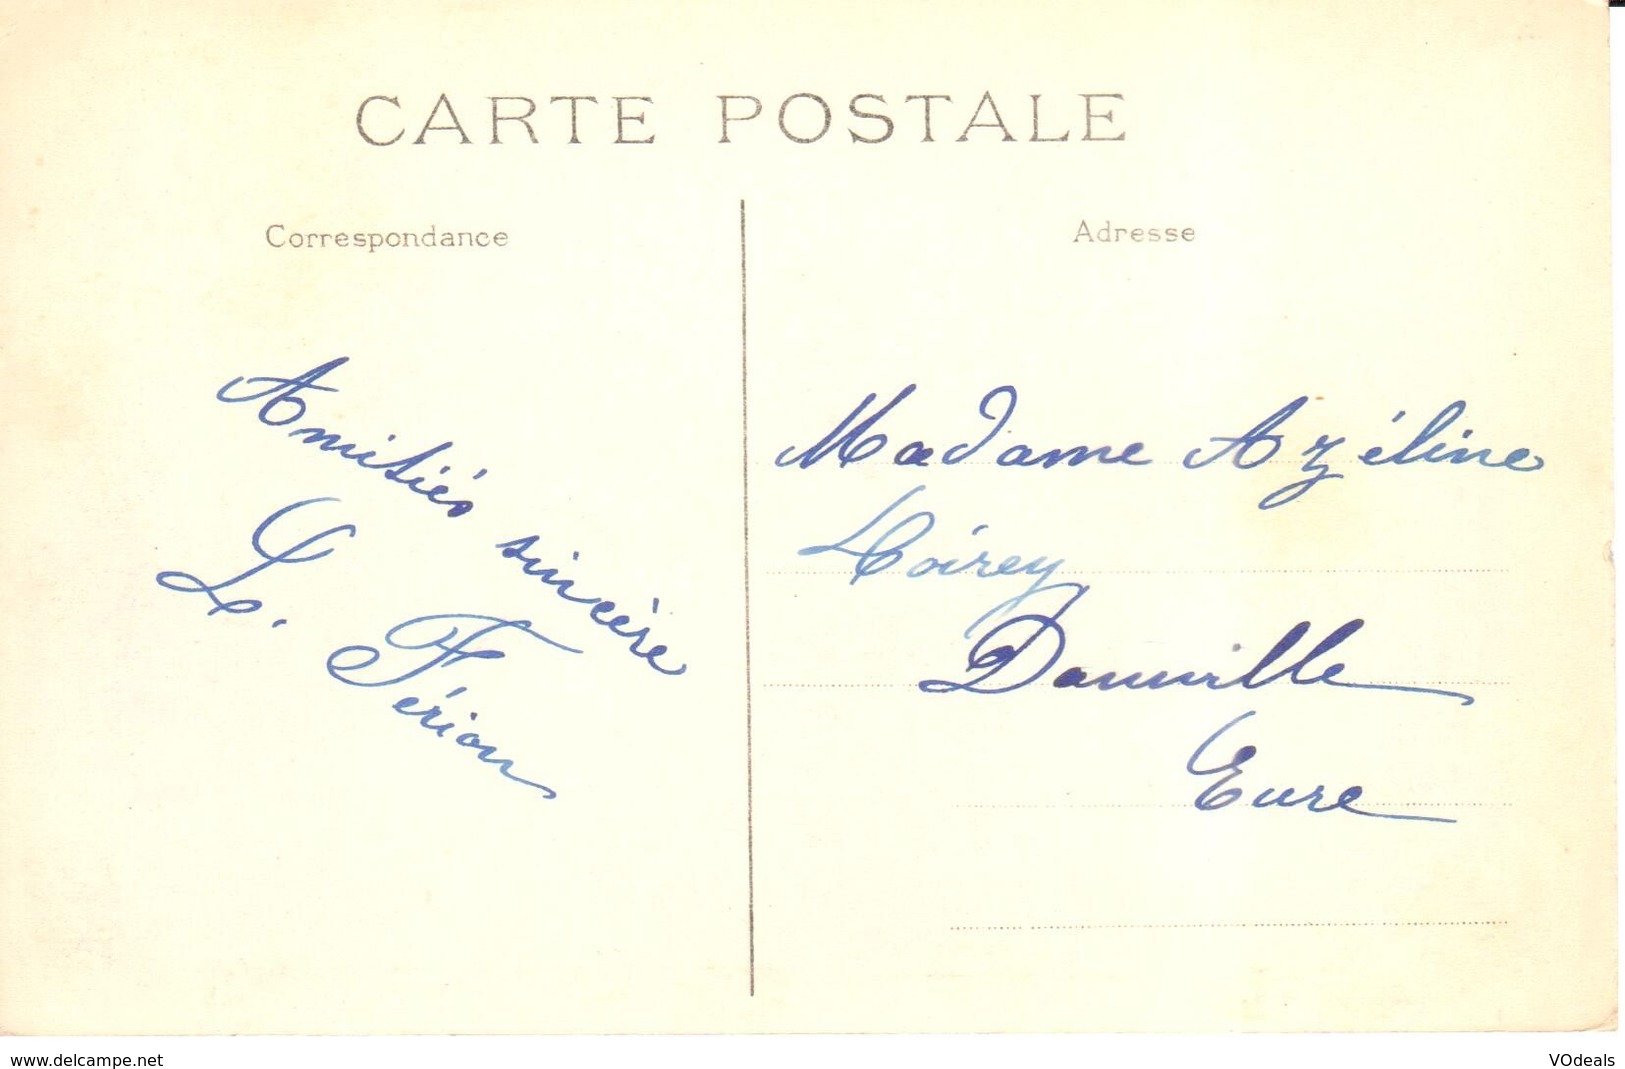 CARTE POSTALE
Correspondance
Amitiés sincère
L. Férion
Adresse
Madame Azéline
Loirey
Damville
Eure
www.delcampe.net
VOdeals